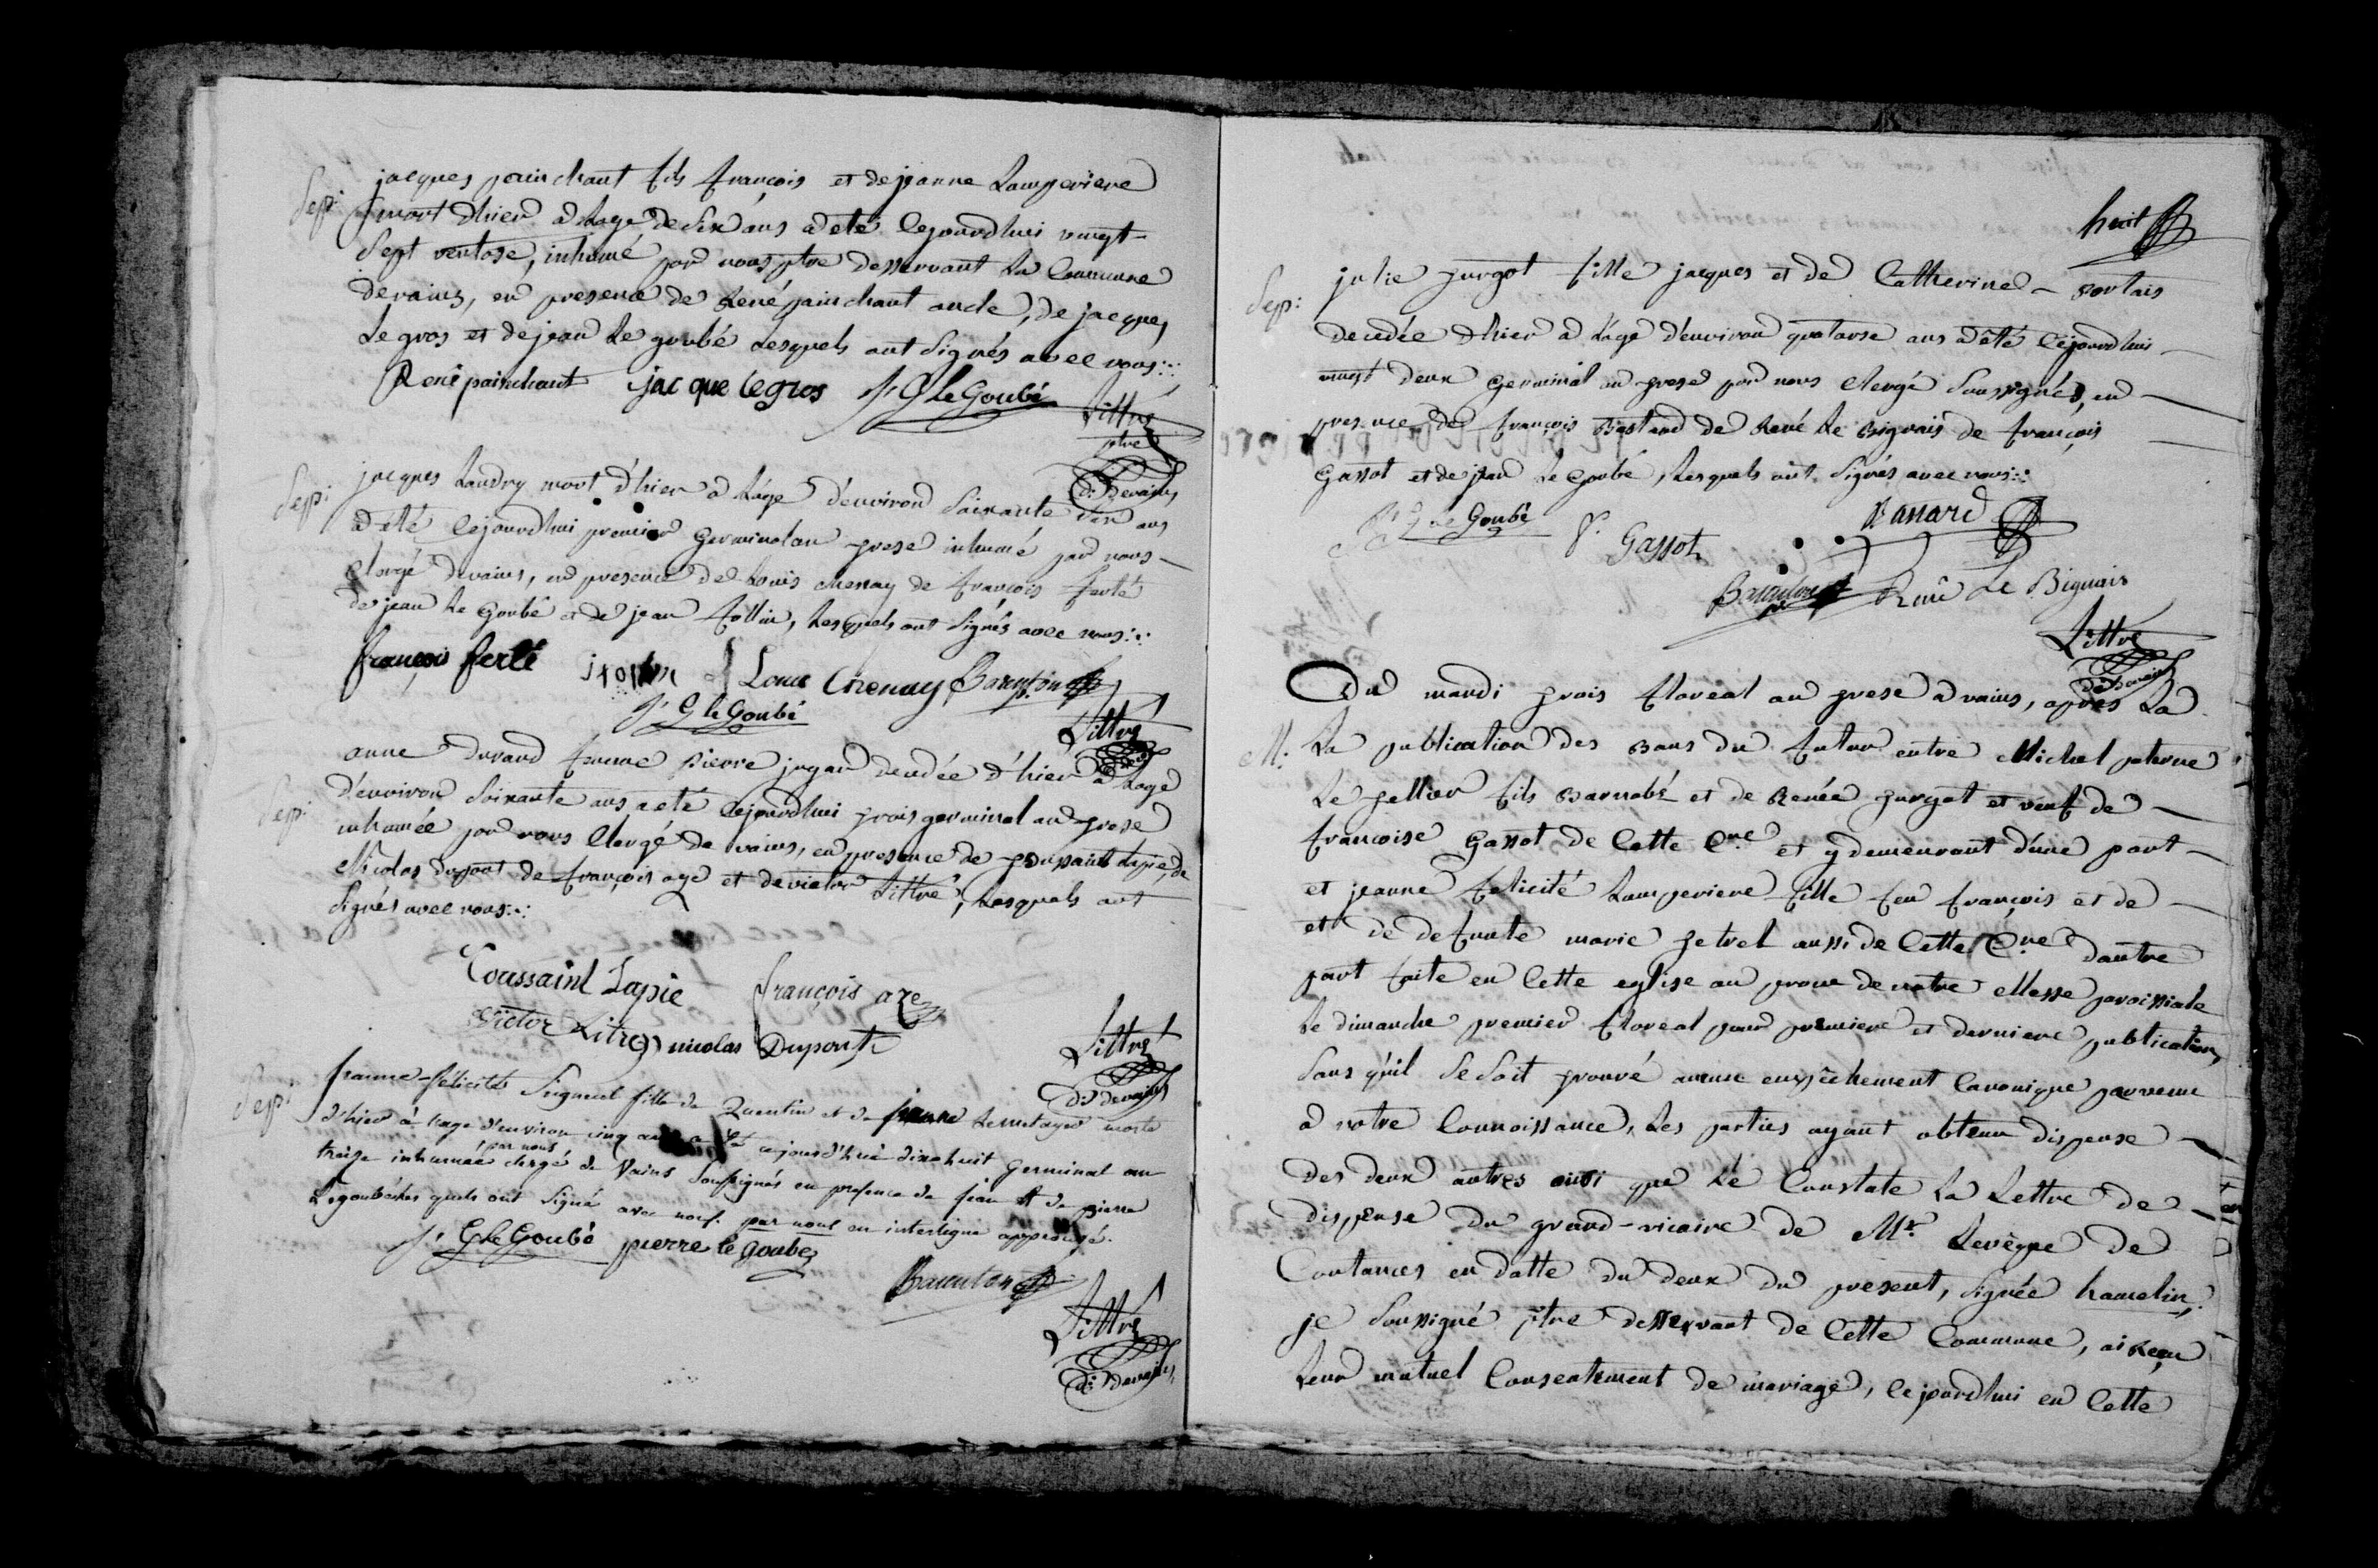 Sep: jacques painchant fils françois et de jeanne Lamperiere
mort dhier a Lage de Six ans a été Cejourdhui vingt
Sept ventose, inhumé par nous ptre desservant La Commune
devains, en presence de René painchant oncle, de jacques
Le gros et de jean Le goubé Lesquels ont Signés avec nous
René painchant jacque legros J: G Le Goubé
Littré
ptre
d: devains
Sep: jacques Landry mort d'hier a Lâge d'environ Soixante dix ans
a été Cejourdhui premier Germinal an trese inhumé par nous
Clergé devains, en presence de Louis chesnay de françois ferté
de jean Le Goubé et de jean follin, Lesquels ont Signés avec nous
françois ferté Louis Chenay Barenton
J: G le Goubé
Littré
anne durand femme Pierre jugan decedée d'hier a Lage
Sep: d'environ Soixante ans a eté Cejourdhui trois germinal an trese
inhumée par nous Clergé de vains, en presence de toussaint Lapie, de
Nicolas dupont de françois aze et de victor Littré, Lesquels ont
Signés avec nous
Toussaint Lapie françois aze
Victor Litré nicolas Dupont
Littré
d: devains
Sep: jeanne-félicité Seigneul fille de Quentin et de jeanne Lemetayer morte
d'hier à l'age d'environ cinq ans a été cejourd'hui dixehuit Germinal an
par nous
treize inhumée clergé de Vains Soussignés en presence de jean et de pierre
Legoubé les quels ont Signé avec nous. par nous en interligne approuvé.
J: G Le Goubé pierre le Goubé
Barenton
Littré
d: devains
huit
Sep: julie turgot fille jacques et de Catherine Portais
decedée dhier a Lage d'environ quatorse ans a été Cejourdhui
vingt deux Germinal an trese par nous Clergé Soussignés, en
presence de françois Bastard de René Le Bignais de françois
Gassot et de jean Le Goubé, Lesquels ont Signés avec nous
J: G Le Goubé f. Gassot
Barenton René Le Bignais
Littré
d: devains
Du mardi trois floreal an trese a vains, après La
M: La publication des Bans du futur entre Michel paterne
Le tellier fils Barnabé et de Renée turgot et veuf de
francoise Gassot de Cette Cne et y demeurant d'une part
et jeanne felicité Lamperiere fille feu françois et de
et de defunte marie tetrel aussi de Cette Cne dautre
part faite en Cette eglise au prone de notre Messe paroissiale
Le dimanche premier floreal pour premiere et derniere publication,
Sans qu'il Se Soit trouvé aucun empêchement Canonique parvenu
a notre Connoissance, Les parties ayant obtenu dispense
des deux autres ainsi que Le Constate La Lettre de
dispense du grand-vicaire de Mr. Levêque de
Coutances en datte du deux du present, Signée hamelin;
je Soussigné ptre desservant de Cette Commune, ai Reçu
Leur mutuel Consentement de mariage, Cejourdhui en Cette